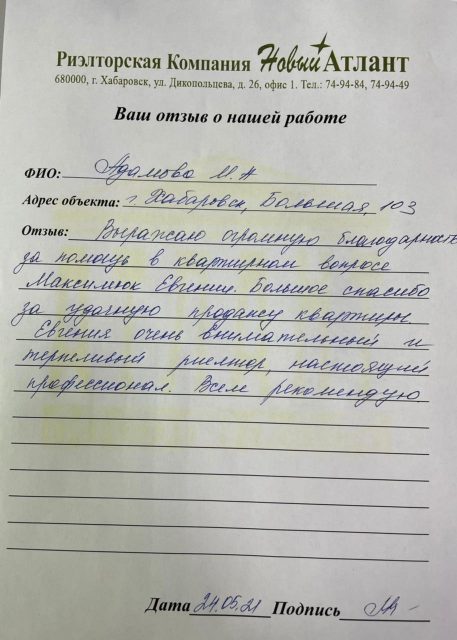 Риэлторская Компания Новый Атлант
680000, г. Хабаровск, ул. Дикопольцева, д. 26, офис 1. Тел.: 74-94-84, 74-94-49
Ваш отзыв о нашей работе
ФИО: Адамова М. А
Адрес объекта: г. Хабаровск, Большая, 103
Отзыв: Выражаю огромную благодарность
за помощь в квартирном вопросе
Максимюк Евгении. Большое спасибо
за удачную продажу квартиры.
Евгения очень внимательный и
терпеливый риелтор, настоящий
профессионал. Всем рекомендую
Дата 24.05.21 Подпись